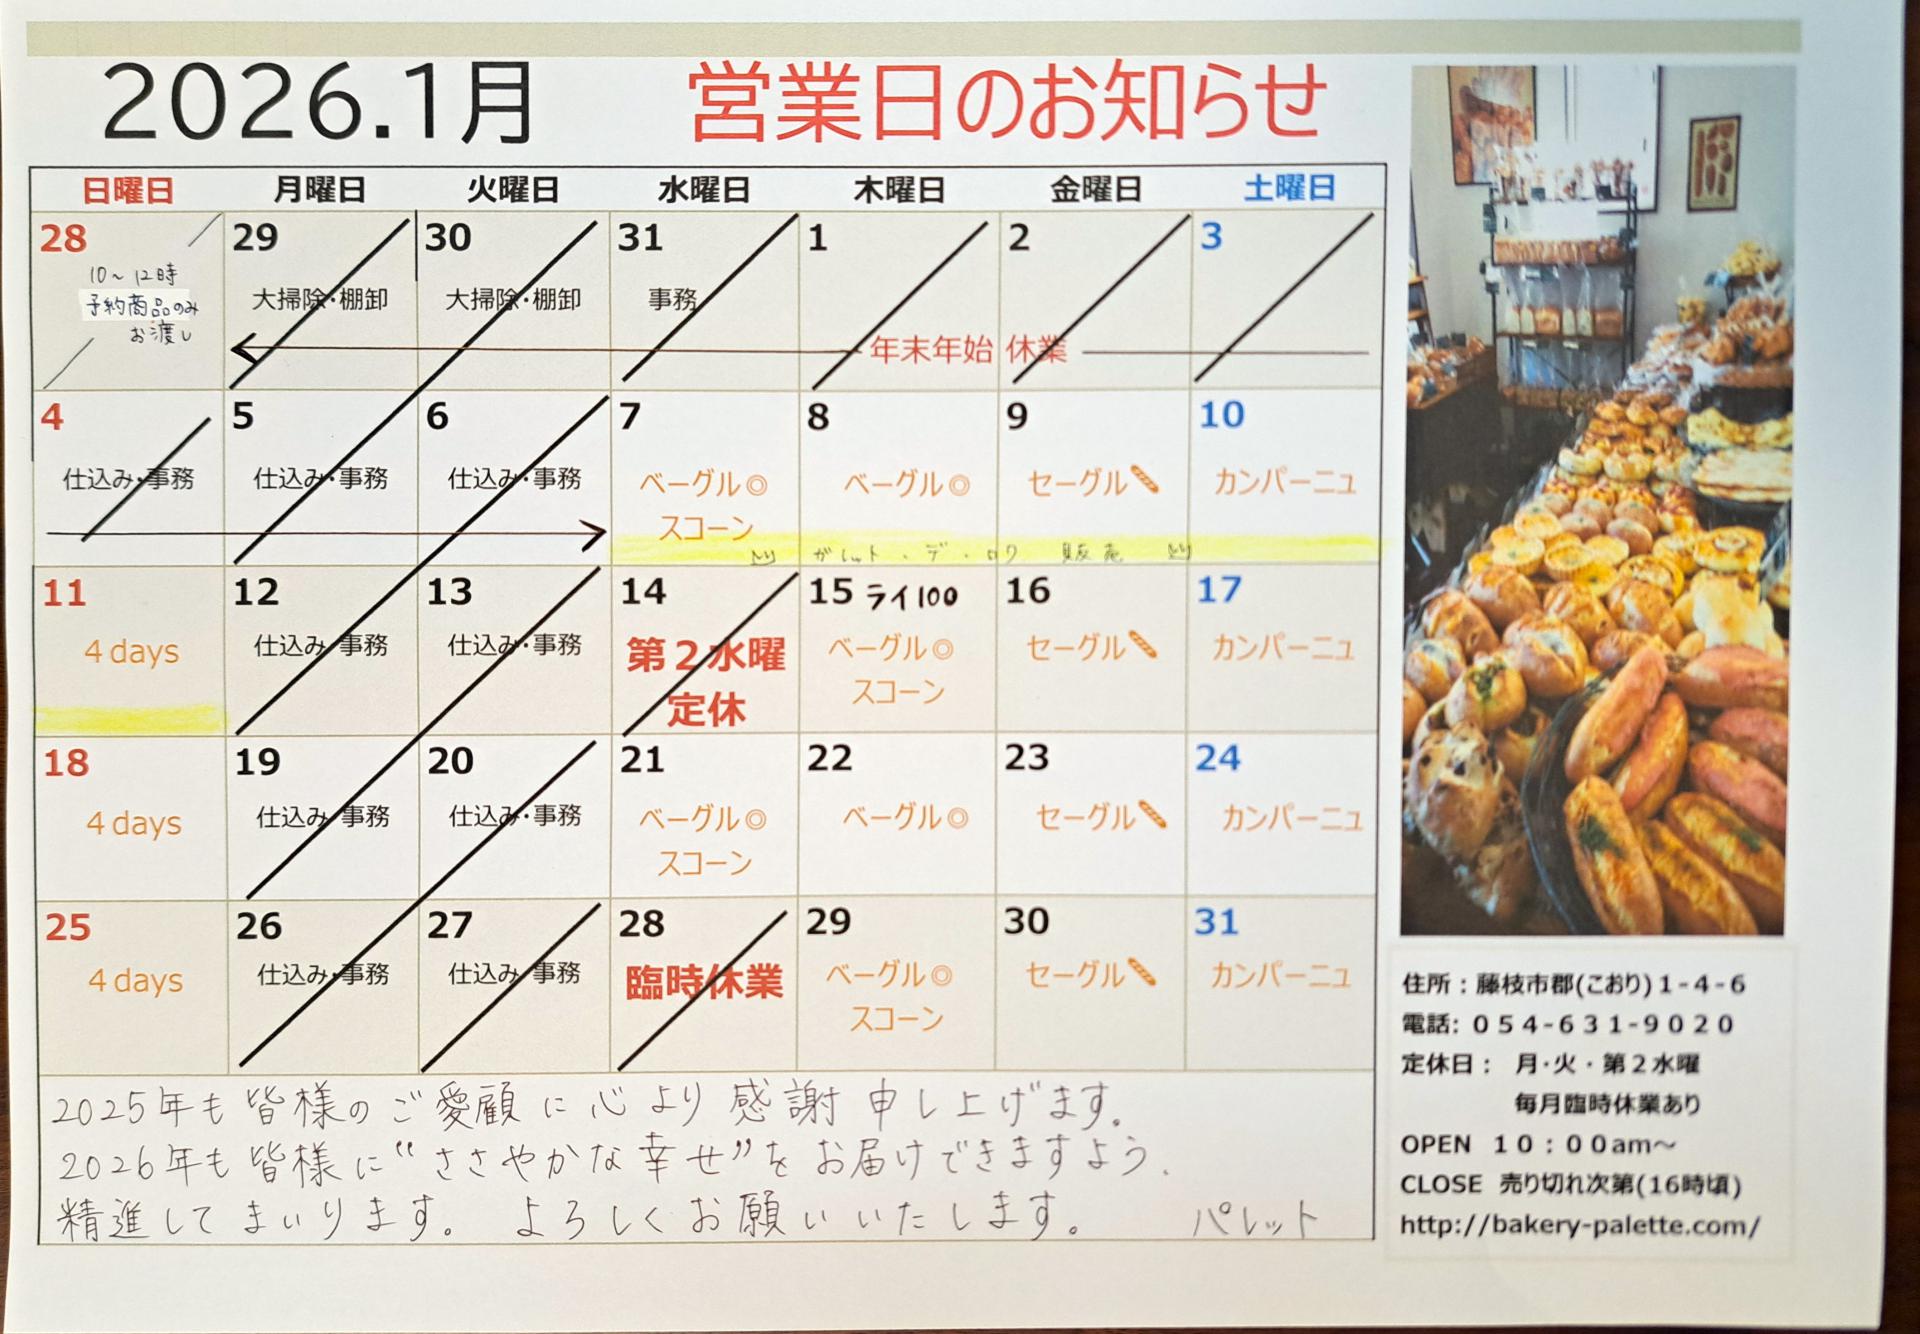 2026.1月 営業日のお知らせ
日曜日 月曜日 火曜日 水曜日 木曜日 金曜日 土曜日
28 29 30 31 1 2 3
10〜12時
予約商品のみ
お渡し
大掃除・棚卸 大掃除・棚卸 事務
年末年始 休業
4 5 6 7 8 9 10
仕込み・事務 仕込み・事務 仕込み・事務 ベーグル◎ ベーグル◎ セーグル🥖 カンパーニュ
スコーン
ガレット・デ・ロワ 販売
11 12 13 14 15 ライ100 16 17
4 days 仕込み・事務 仕込み・事務 第2水曜 ベーグル◎ セーグル🥖 カンパーニュ
定休 スコーン
18 19 20 21 22 23 24
4 days 仕込み・事務 仕込み・事務 ベーグル◎ ベーグル◎ セーグル🥖 カンパーニュ
スコーン
25 26 27 28 29 30 31
4 days 仕込み・事務 仕込み・事務 臨時休業 ベーグル◎ セーグル🥖 カンパーニュ
スコーン
2025年も皆様のご愛顧に心より感謝申し上げます。
2026年も皆様に“ささやかな幸せ”をお届けできますよう、
精進してまいります。 よろしくお願いいたします。 パレット
住所：藤枝市郡(こおり)1-4-6
電話: 054-631-9020
定休日： 月・火・第2水曜
毎月臨時休業あり
OPEN 10：00am〜
CLOSE 売り切れ次第(16時頃)
http://bakery-palette.com/